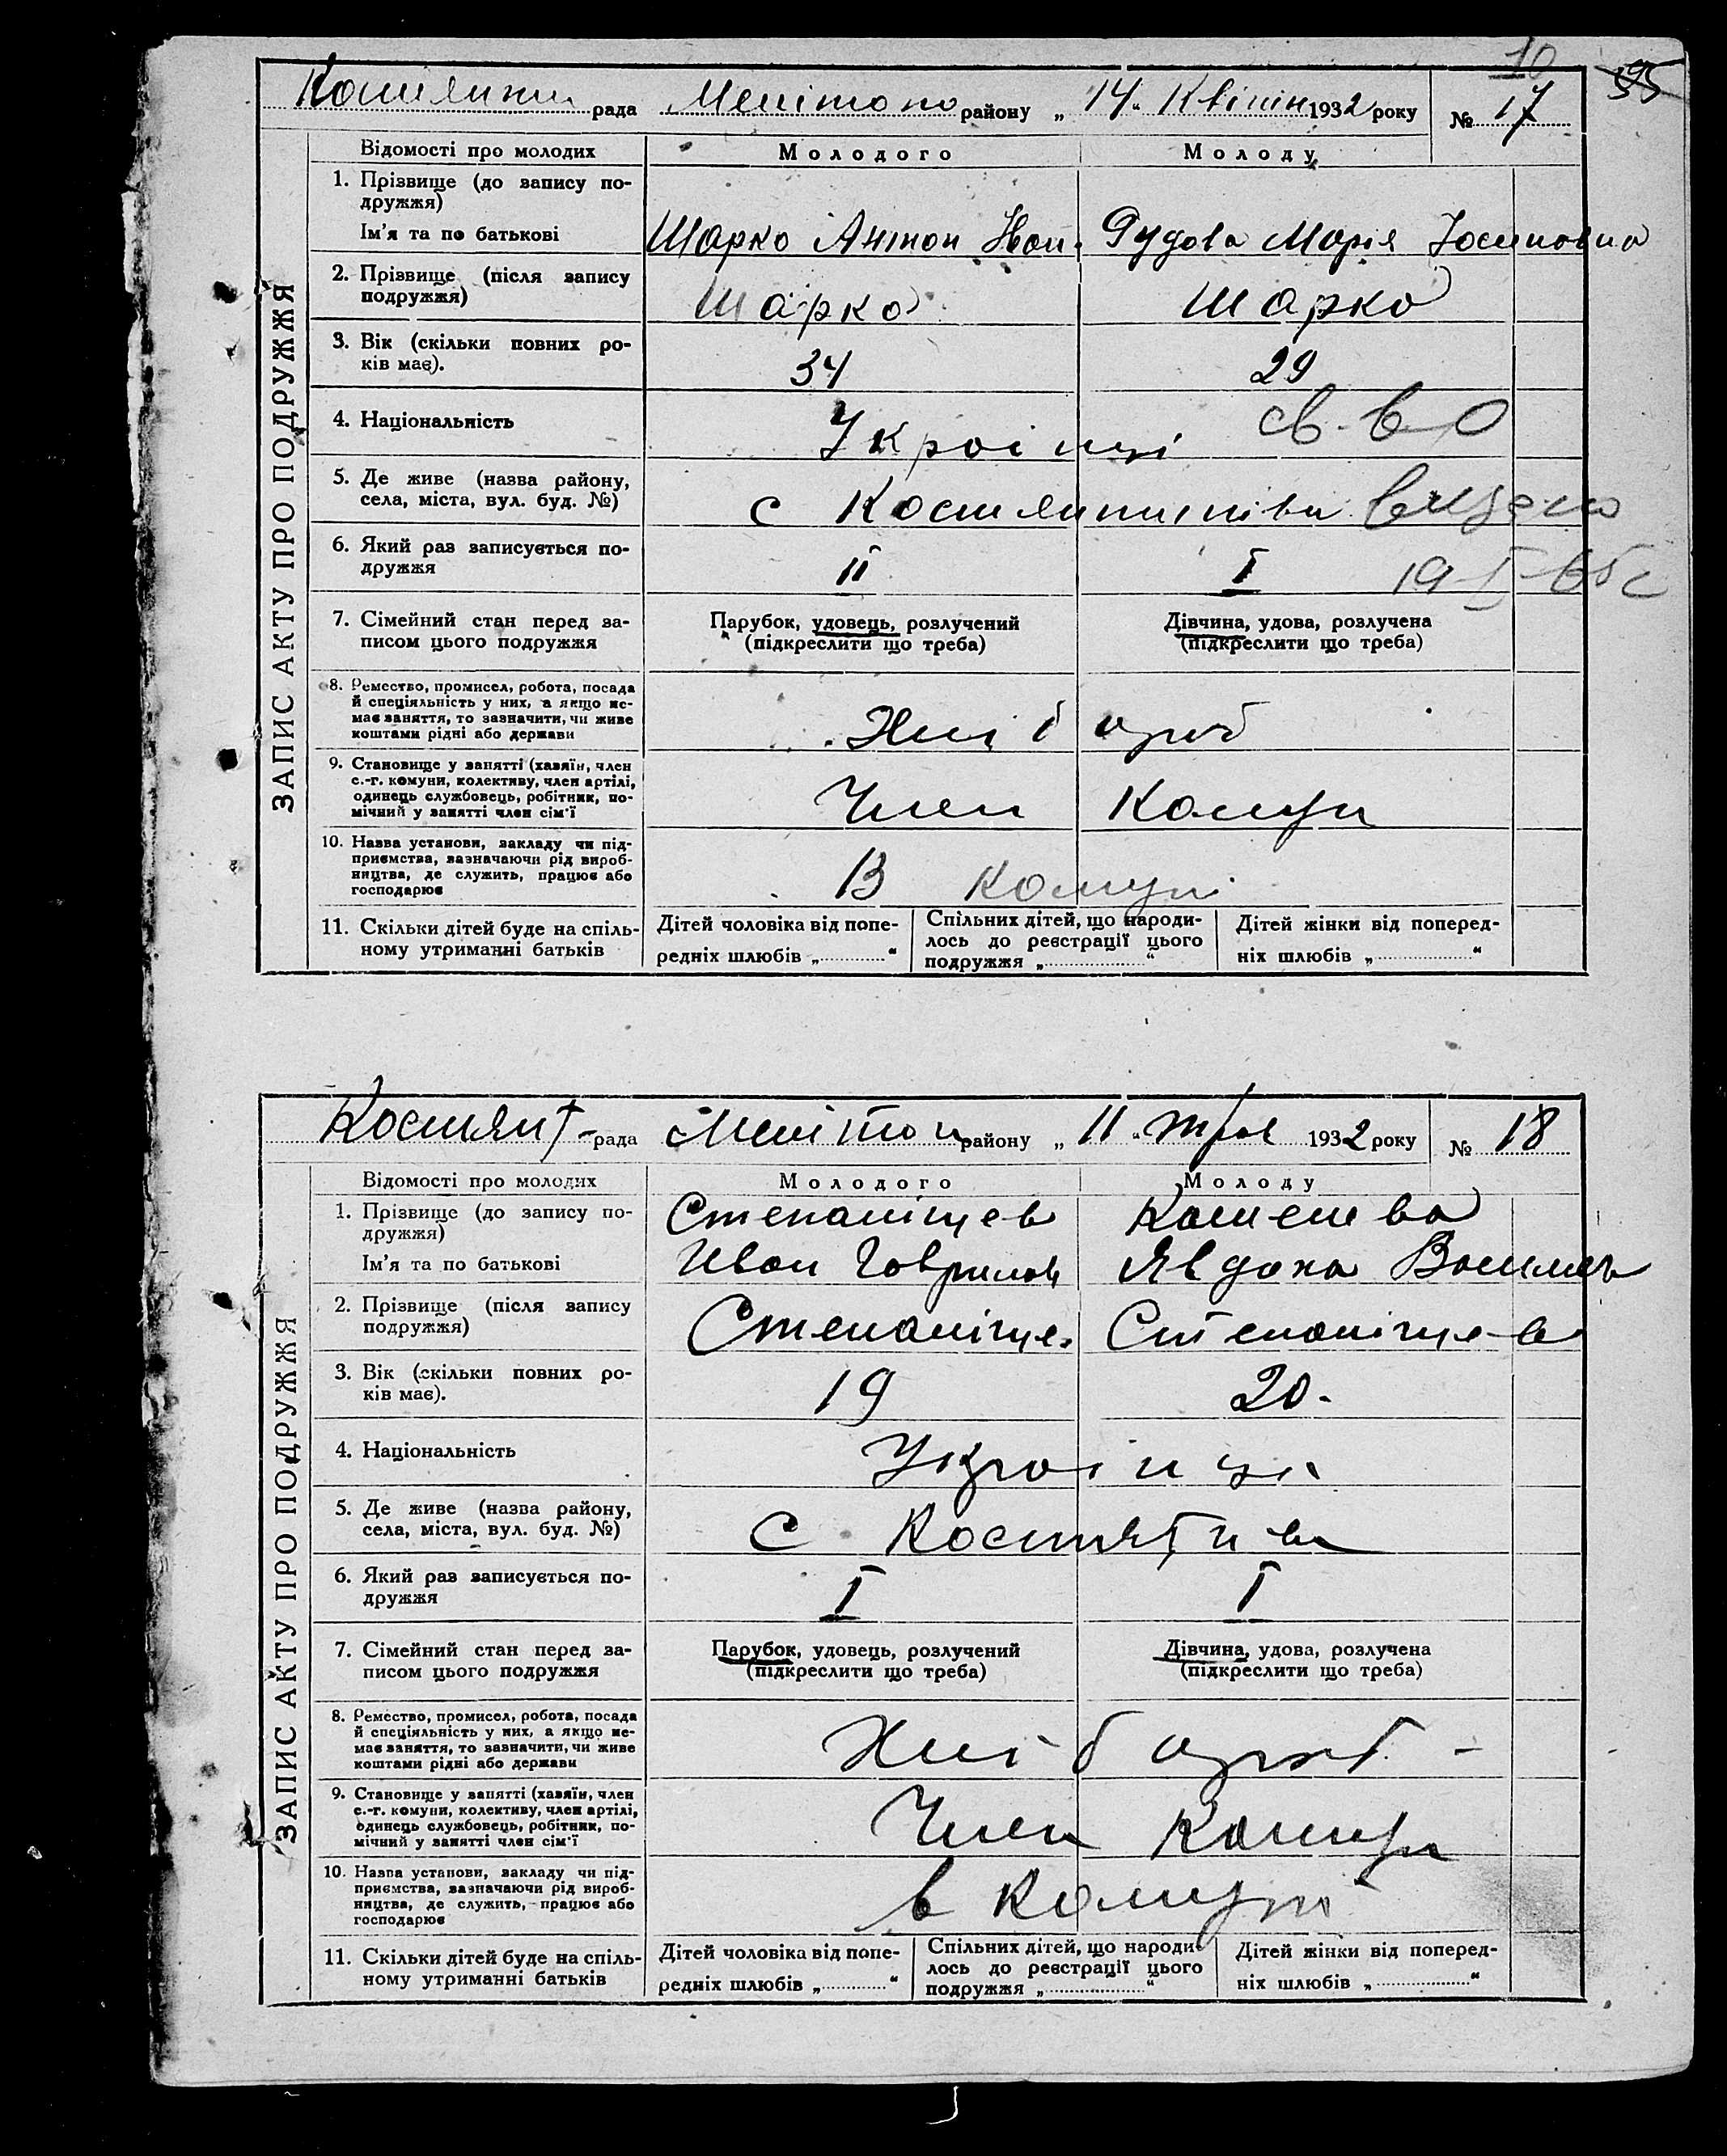 10
95
рада Мелітоп району „14“ Квітн 1932 року № 17
Відомості про молодих Молодого Молоду
ЗАПИС АКТУ ПРО ПОДРУЖЖЯ
1. Прізвище (до запису по-
дружжя)
Ім'я та по батькові Шарко Антон Рудова Марія Йосиповна
2. Прізвище (після запису
подружжя) Шарко Шарко
3. Вік (скільки повних ро-
ків має). 34 29
4. Національність Україці св-во
5. Де живе (назва району,
села, міста, вул. буд. №) с
6. Який раз записується по-
дружжя II I
7. Сімейний стан перед за-
писом цього подружжя
Парубок, удовець, розлучений
(підкреслити що треба)
Дівчина, удова, розлучена
(підкреслити що треба)
8. Ремество, промисел, робота, посада
й спеціяльність у них, а якщо не-
має заняття, то зазначити, чи живе
коштами рідні або держави
Хлібороб
9. Становище у занятті (хазяїн, член
с.-г. комуни, колективу, член артілі,
одинець службовець, робітник, по-
мічний у занятті член сім'ї
Член Комун
10. Назва установи, закладу чи під-
приємства, зазначаючи рід вироб-
ництва, де служить, працює або
господарює
В комуні
11. Скільки дітей буде на спіль-
ному утриманні батьків
Дітей чоловіка від попе-
редніх шлюбів „ “
Спільних дітей, що народи-
лось до реєстрації цього
подружжя „ “
Дітей жінки від поперед-
ніх шлюбів „ “
Костянт- рада Мелітоп району „11“ Трав 1932 року № 18
Відомості про молодих Молодого Молоду
ЗАПИС АКТУ ПРО ПОДРУЖЖЯ
1. Прізвище (до запису по-
дружжя) Степаніщев
Ім'я та по батькові Иван Гаврилов Явдоха Василів
2. Прізвище (після запису
подружжя) Степаніще. Степаніщев
3. Вік (скільки повних ро-
ків має). 19 20-
4. Національність Україці
5. Де живе (назва району,
села, міста, вул. буд. №) с. Костятив
6. Який раз записується по-
дружжя I I
7. Сімейний стан перед за-
писом цього подружжя
Парубок, удовець, розлучений
(підкреслити що треба)
Дівчина, удова, розлучена
(підкреслити що треба)
8. Ремество, промисел, робота, посада
й спеціяльність у них, а якщо не-
має заняття, то зазначити, чи живе
коштами рідні або держави
Хліборob -
9. Становище у занятті (хазяїн, член
с.-г. комуни, колективу, член артілі,
одинець службовець, робітник, по-
мічний у занятті член сім'ї
Член Комун
10. Назва установи, закладу чи під-
приємства, зазначаючи рід вироб-
ництва, де служить, працює або
господарює
в комуні
11. Скільки дітей буде на спіль-
ному утриманні батьків
Дітей чоловіка від попе-
редніх шлюбів „ “
Спільних дітей, що народи-
лось до реєстрації цього
подружжя „ “
Дітей жінки від поперед-
ніх шлюбів „ “